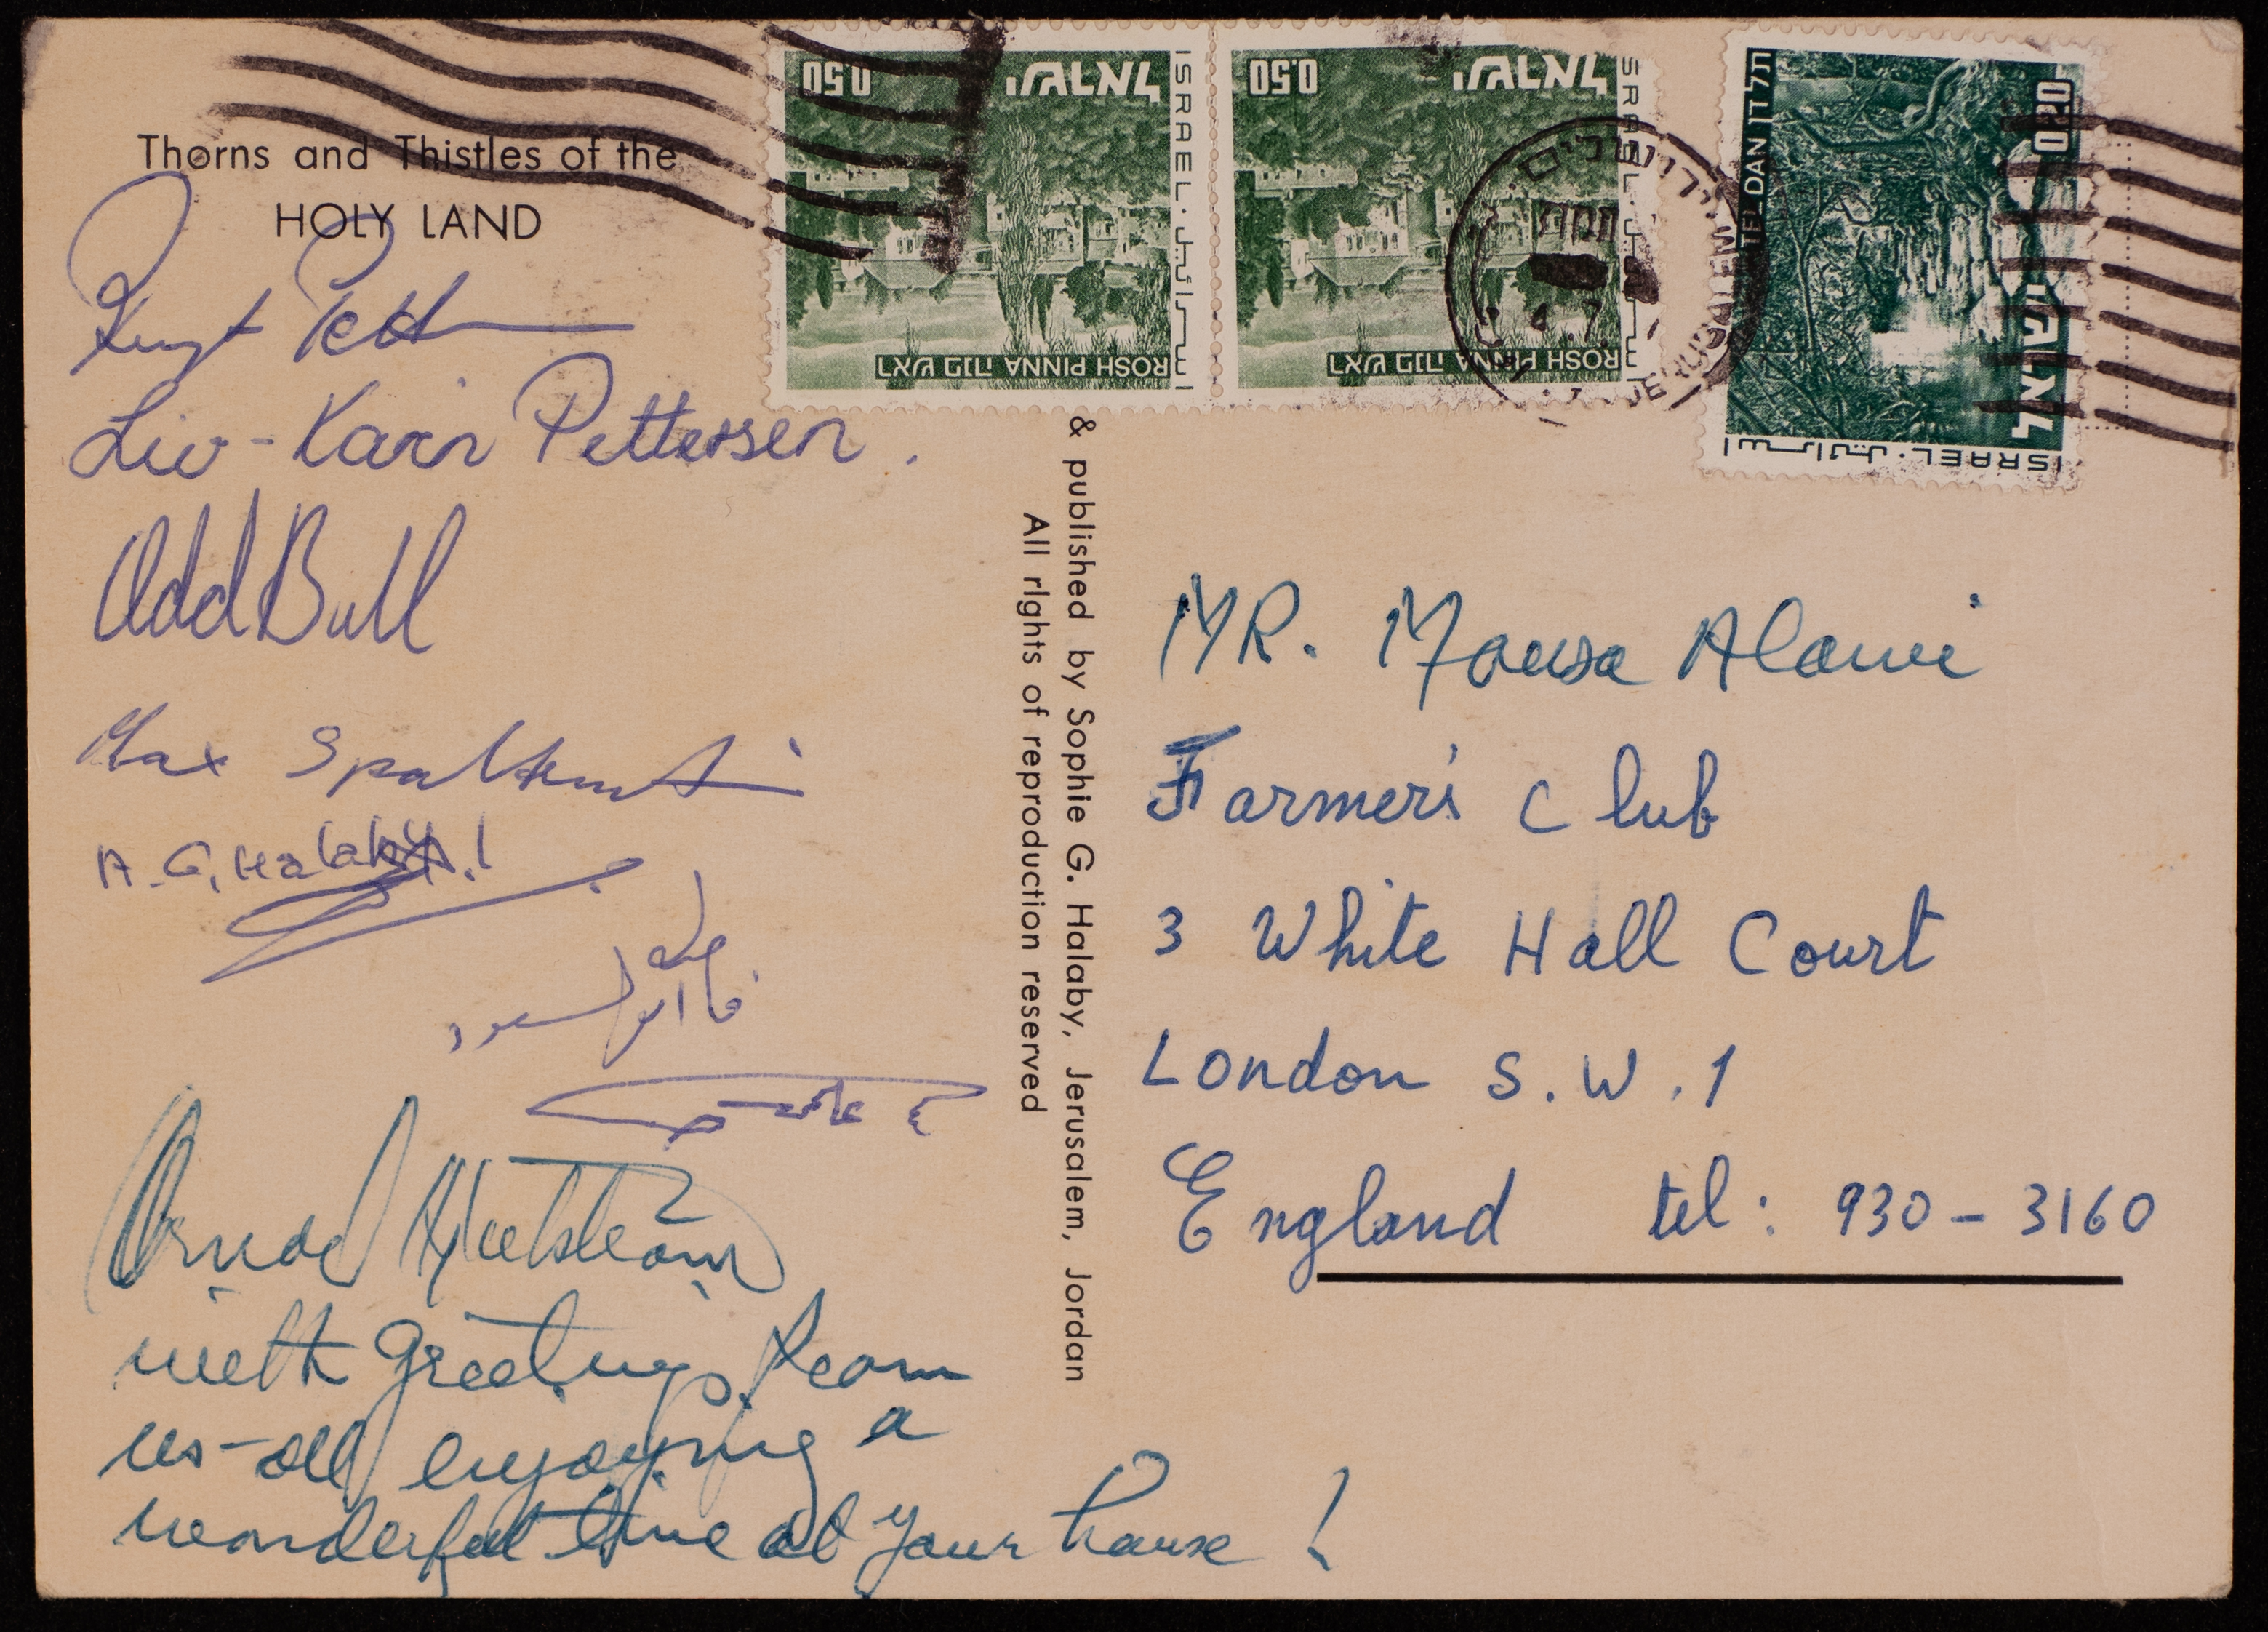 Thorns and Thistles of the
HOLY LAND
Liv-Karin Pettersen.
Odd Bull
Max
A. G. Halaby
with greetings from
us-all enjoying a
wonderful time at your house!
& published by Sophie G. Halaby, Jerusalem, Jordan
All rights of reproduction reserved
0.50
ישראל
ISRAEL · اسرائيل
ROSH PINNA ראש פנה
0.50
ישראל
ISRAEL · اسرائيل
ROSH PINNA ראש פנה
ירושלים
JERUSALEM
תל דן TEL DAN
0.20
ישראל
ISRAEL · اسرائيل
MR. Mousa Alami
Farmer's Club
3 White Hall Court
London S.W.1
England tel: 930-3160